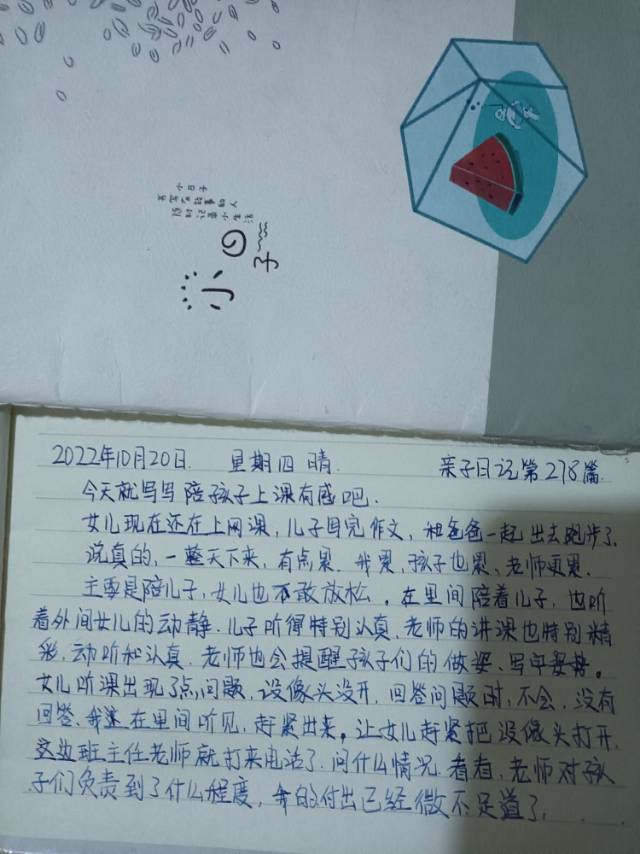 小日子
善写有故事的人
随时记录小生活
小日子
2022年10月20日. 星期四 晴. 亲子日记第278篇.
今天就写写陪孩子上课有感吧.
女儿现在还在上网课,儿子写完作文,和爸爸一起出去跑步了.
说真的,一整天下来,有点累.我累,孩子也累,老师更累.
主要是陪儿子,女儿也不敢放松。在里间陪着儿子,也听
着外间女儿的动静.儿子听得特别认真.老师的讲课也特别精
彩,动听和认真.老师也会提醒孩子们的做姿、写字姿势。
女儿听课出现了点问题.设像头没开.回答问题时,不会,没有
回答.我在里间听见,赶紧出来。让女儿赶紧把设像头打开.
这边班主任老师就打来电话了.问什么情况.看看,老师对孩
子们负责到了什么程度,我的付出已经微不足道了.